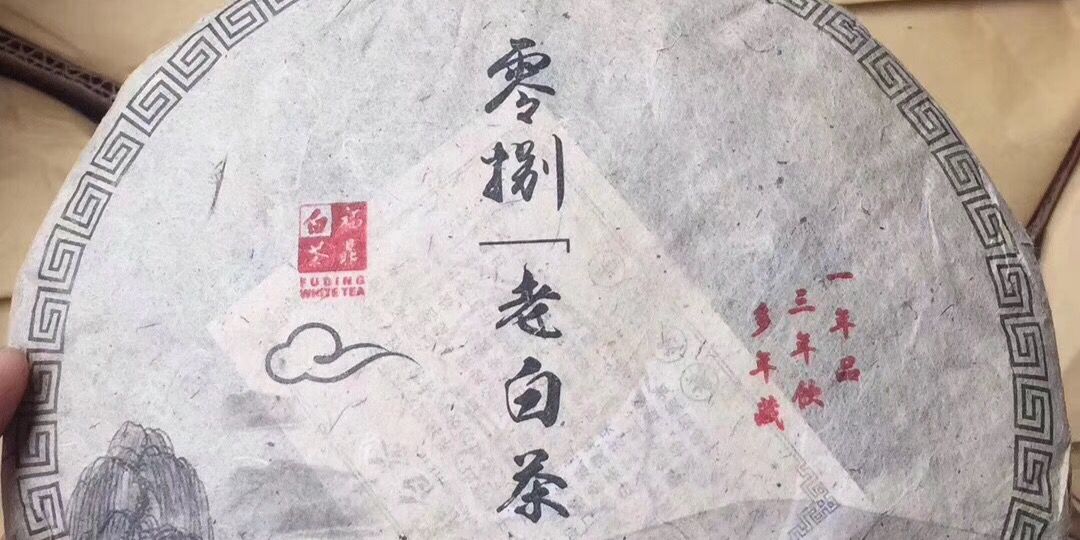 零捌「老白茶
福鼎
白茶
FUDING
WHITE TEA
一年品
三年饮
多年藏